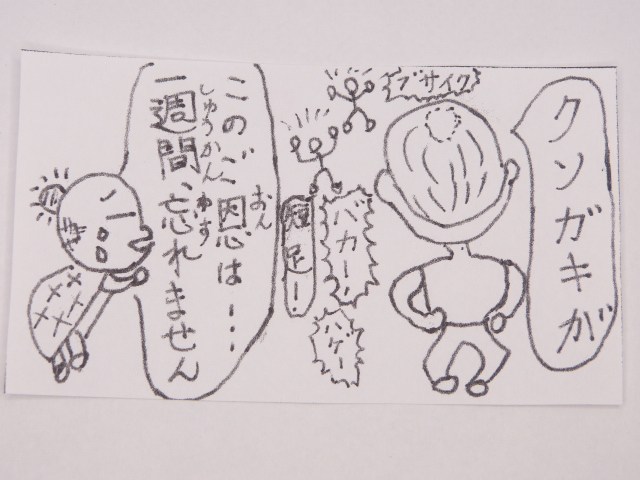 クソガキが
ブサイク
バカー!
ハゲー
短足ー!
このご恩は…
おん
一週間、忘れません
しゅうかん
わす